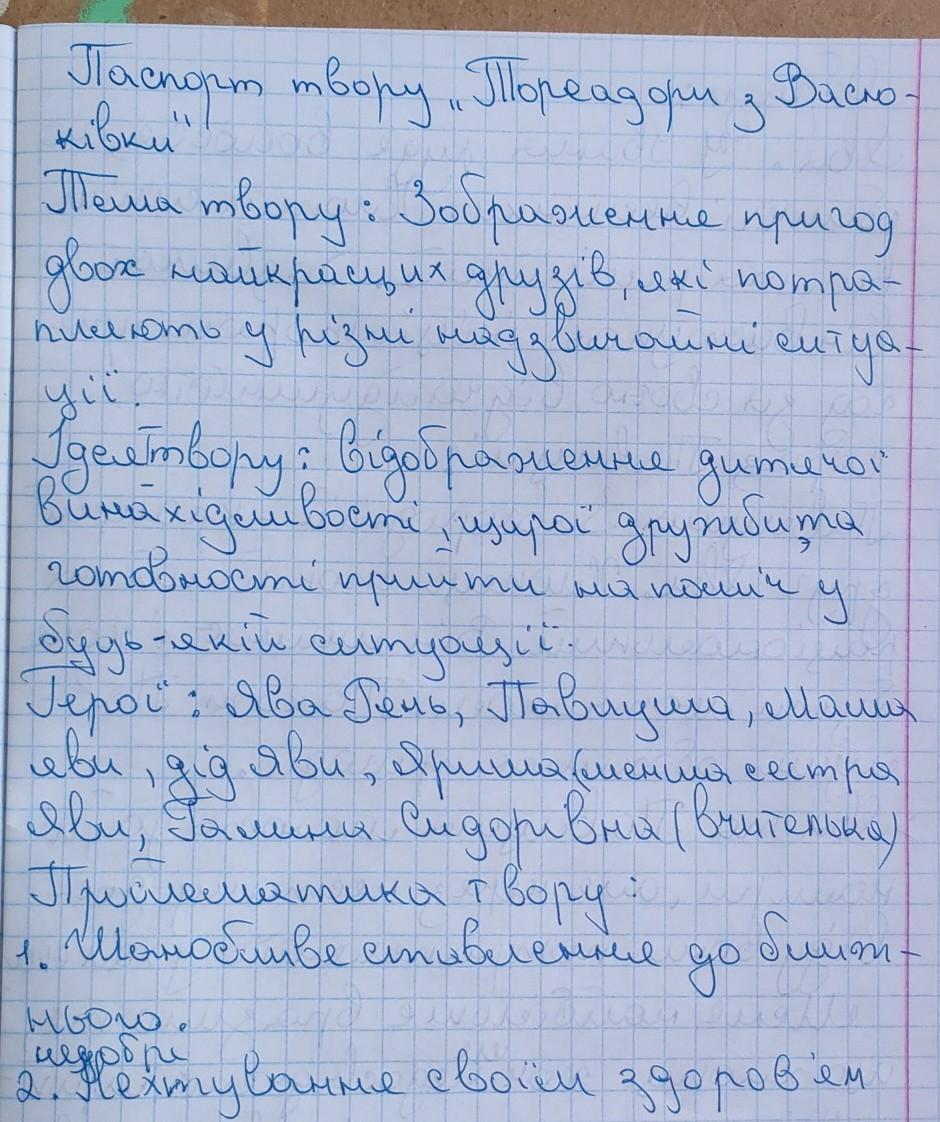 Паспорт твору „Тореадори з Васю-
ківки"
Тема твору: Зображення пригод
двох найкращих друзів, які потра-
пляють у різні надзвичайні ситуа-
ції.
Ідея твору: відображення дитячої
винахідливості, щирої дружби та
готовності прийти на поміч у
будь-якій ситуації.
Герої: Ява Рень, Павлуша, Мама
Яви, дід Яви, Яришка (менша сестра
Яви, Галина Сидорівна (вчителька)
Проблематика твору:
1. Шанобливе ставлення до ближ-
нього.
недобре
2. Нехтування своїм здоров'ям